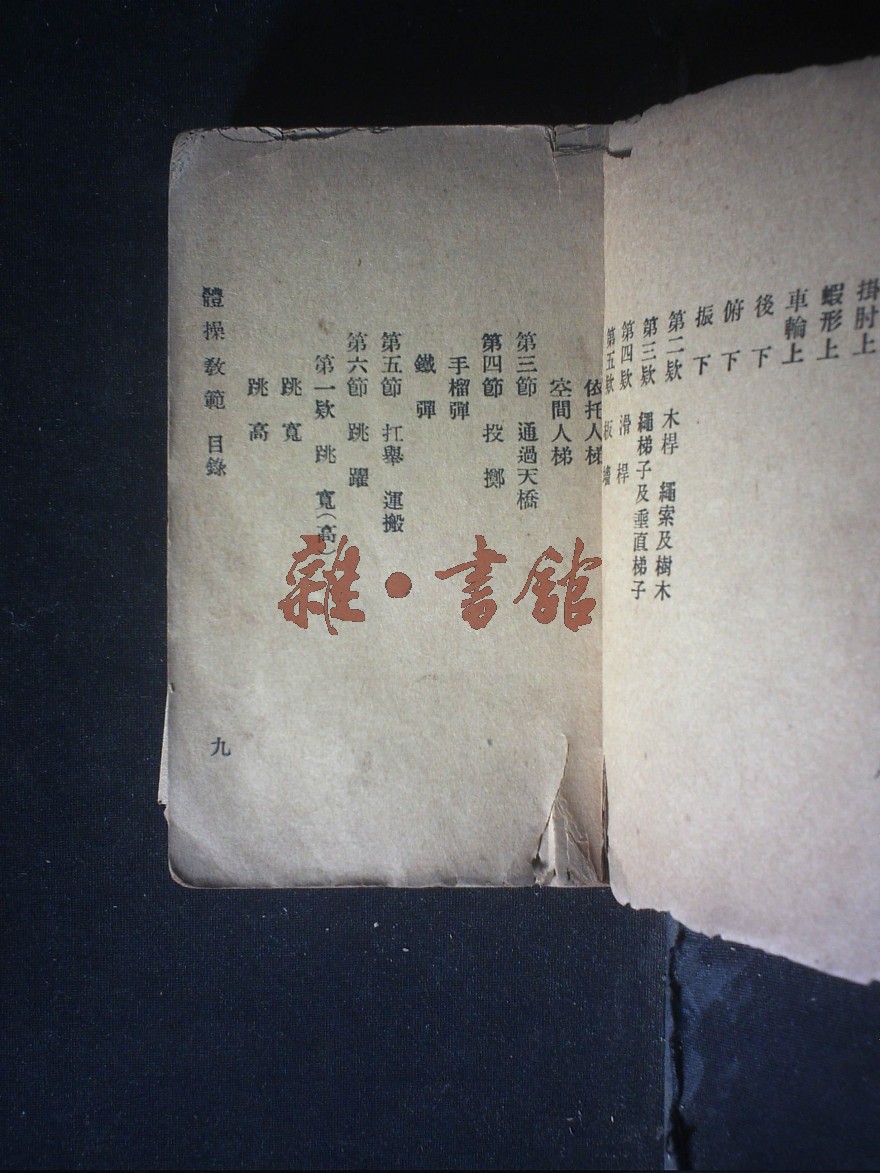 掛肘上
蝦形上
車輪上
後下
俯下
振下
第二欵 木桿 繩索及樹木
第三欵 繩梯子及垂直梯子
第四欵 滑桿
第五欵 板墻
依托人梯
空間人梯
第三節 通過天橋
第四節 投擲
手榴彈
鐵彈
第五節 扛舉 運搬
第六節 跳躍
第一欵 跳寬(高)
跳寬
跳高
體操教範 目錄
九
雜·書館